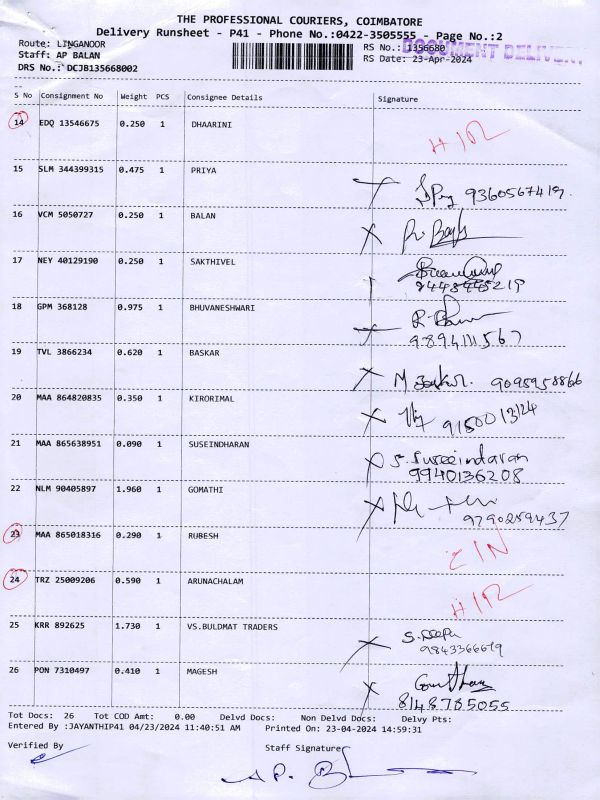 THE PROFESSIONAL COURIERS, COIMBATORE
Delivery Runsheet - P41 - Phone No.:0422-3505555 - Page No.:2
Route: LINGANOOR
Staff: AP BALAN
DRS No.: DCJB135668002
RS No.: 1356680
DOCUMENT DELIVERY
RS Date: 23-Apr-2024
S No Consignment No Weight PCS Consignee Details Signature
14 EDQ 13546675 0.250 1 DHAARINI
15 SLM 344399315 0.475 1 PRIYA 9360567419.
16 VCM 5050727 0.250 1 BALAN
17 NEY 40129190 0.250 1 SAKTHIVEL
9448445219
18 GPM 368128 0.975 1 BHUVANESHWARI
9894111567
19 TVL 3866234 0.620 1 BASKAR M 9095958866
20 MAA 864820835 0.350 1 KIRORIMAL 9150013124
21 MAA 865638951 0.090 1 SUSEINDHARAN S. Suseeindaran
9940136208
22 NLM 90405897 1.960 1 GOMATHI
9790259437
23 MAA 865018316 0.290 1 RUBESH
24 TRZ 25009206 0.590 1 ARUNACHALAM
25 KRR 892625 1.730 1 VS.BULDMAT TRADERS S. Deepa
9843366679
26 PON 7310497 0.410 1 MAGESH
8148785055
Tot Docs: 26 Tot COD Amt: 0.00 Delvd Docs: Non Delvd Docs: Delvy Pts:
Entered By :JAYANTHIP41 04/23/2024 11:40:51 AM Printed On: 23-04-2024 14:59:31
Verified By Staff Signature